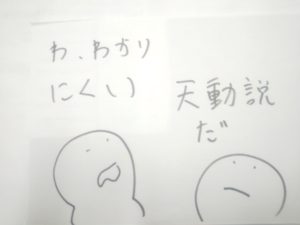 わ、わかり
にくい
天動説
だ